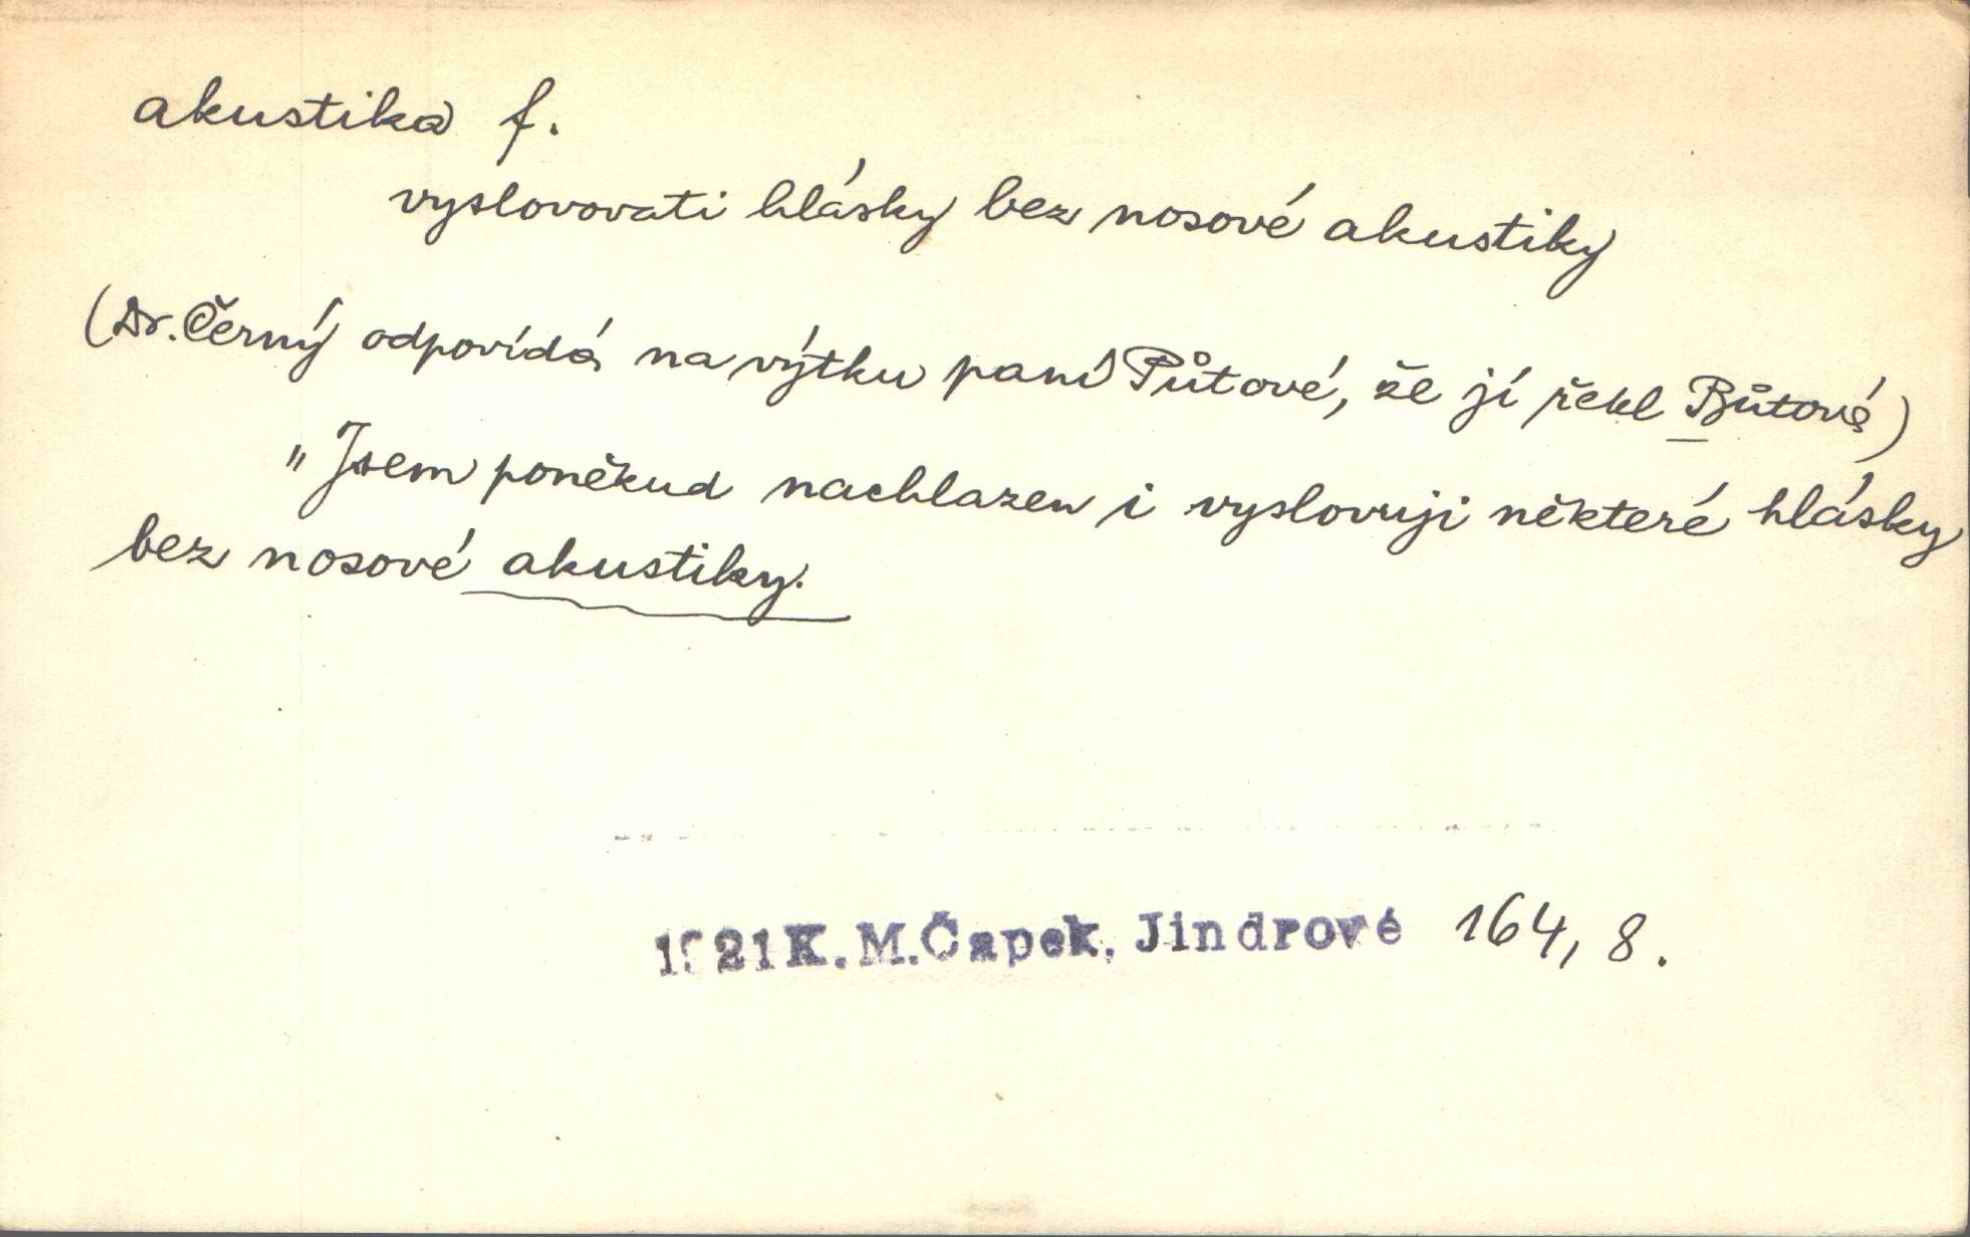 akustika f.
vyslovovati hlásky bez nosové akustiky
(Dr. Černý odpovídá na výtku paní Půtové, že jí řekl Bůtová)
"Jsem poněkud nachlazen i vyslovuji některé hlásky
bez nosové akustiky.
1921 K. M. Čapek, Jindrové 164, 8.